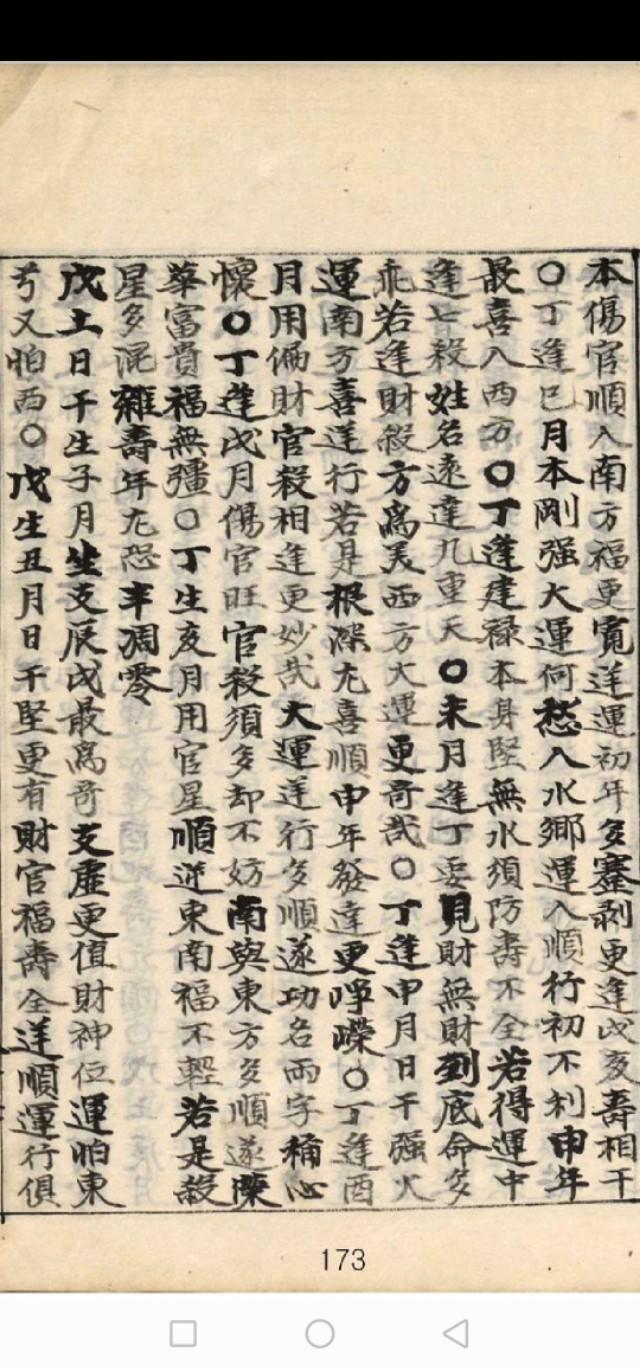 本傷官順入南方福更寬逆運初年多蹇剥更逢戌亥壽相干
○丁逢巳月本剛强大運何愁入水鄉運入順行初不利申年
最喜入西方○丁逢建禄本身堅無水須防壽不全若得運中
逢七殺姓名遠達九重天○未月逢丁要見財無財到底命多
乖若逢財殺方爲美西方大運更奇哉○丁逢申月日干强火
運南方喜逆行若是根深尤喜順申年發達更崢嶸○丁逢酉
月用偏財官殺相逢更妙哉大運逆行多順遂功名兩字稱心
懷○丁逢戌月傷官旺官殺須多却不妨南與東方多順遂
華富貴福無疆○丁生亥月用官星順逆東南福不輕若是殺
星多混雜壽年尤恐半凋零
戊土日干生子月生支辰戌最爲奇支虛更值財神位運怕東
兮又怕西○戊生丑月日干堅更有財官福壽全逆順運行俱
173